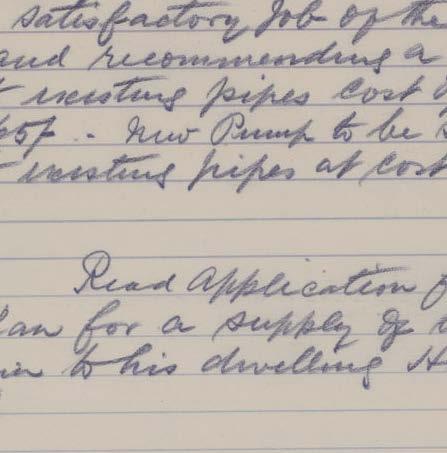 satisfactory Job of the
and recommending a
existing pipes cost
65/- . New Pump to be
existing pipes at cost
Read Application
an for a supply of
to his dwelling H